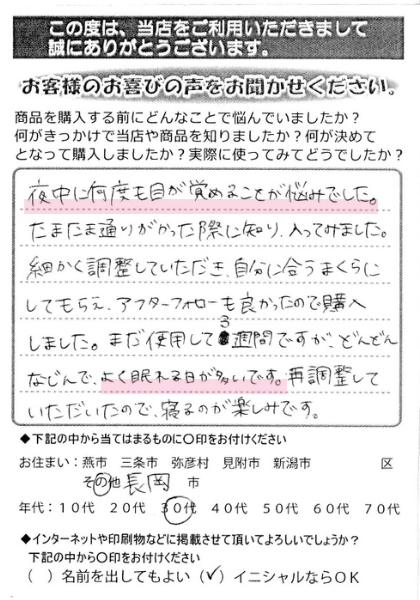 この度は、当店をご利用いただきまして
誠にありがとうございます。
お客様のお喜びの声をお聞かせください。
商品を購入する前にどんなことで悩んでいましたか?
何がきっかけで当店や商品を知りましたか?何が決めて
となって購入しましたか?実際に使ってみてどうでしたか?
夜中に何度も目が覚めることが悩みでした。
たまたま通りがかった際に知り、入ってみました。
細かく調整していただき、自分に合うまくらに
してもらえ、アフターフォローも良かったので購入
しました。まだ使用して3週間ですが、どんどん
なじんで、よく眠れる日が多いです。再調整して
いただいたので、寝るのが楽しみです。
◆下記の中から当てはまるものに○印をお付けください
お住まい:燕市 三条市 弥彦村 見附市 新潟市 区
その他 長岡 市
年代:10代 20代 30代 40代 50代 60代 70代
◆インターネットや印刷物などに掲載させて頂いてよろしいでしょうか?
下記の中から○印をお付けください
( )名前を出してもよい (✓)イニシャルならOK